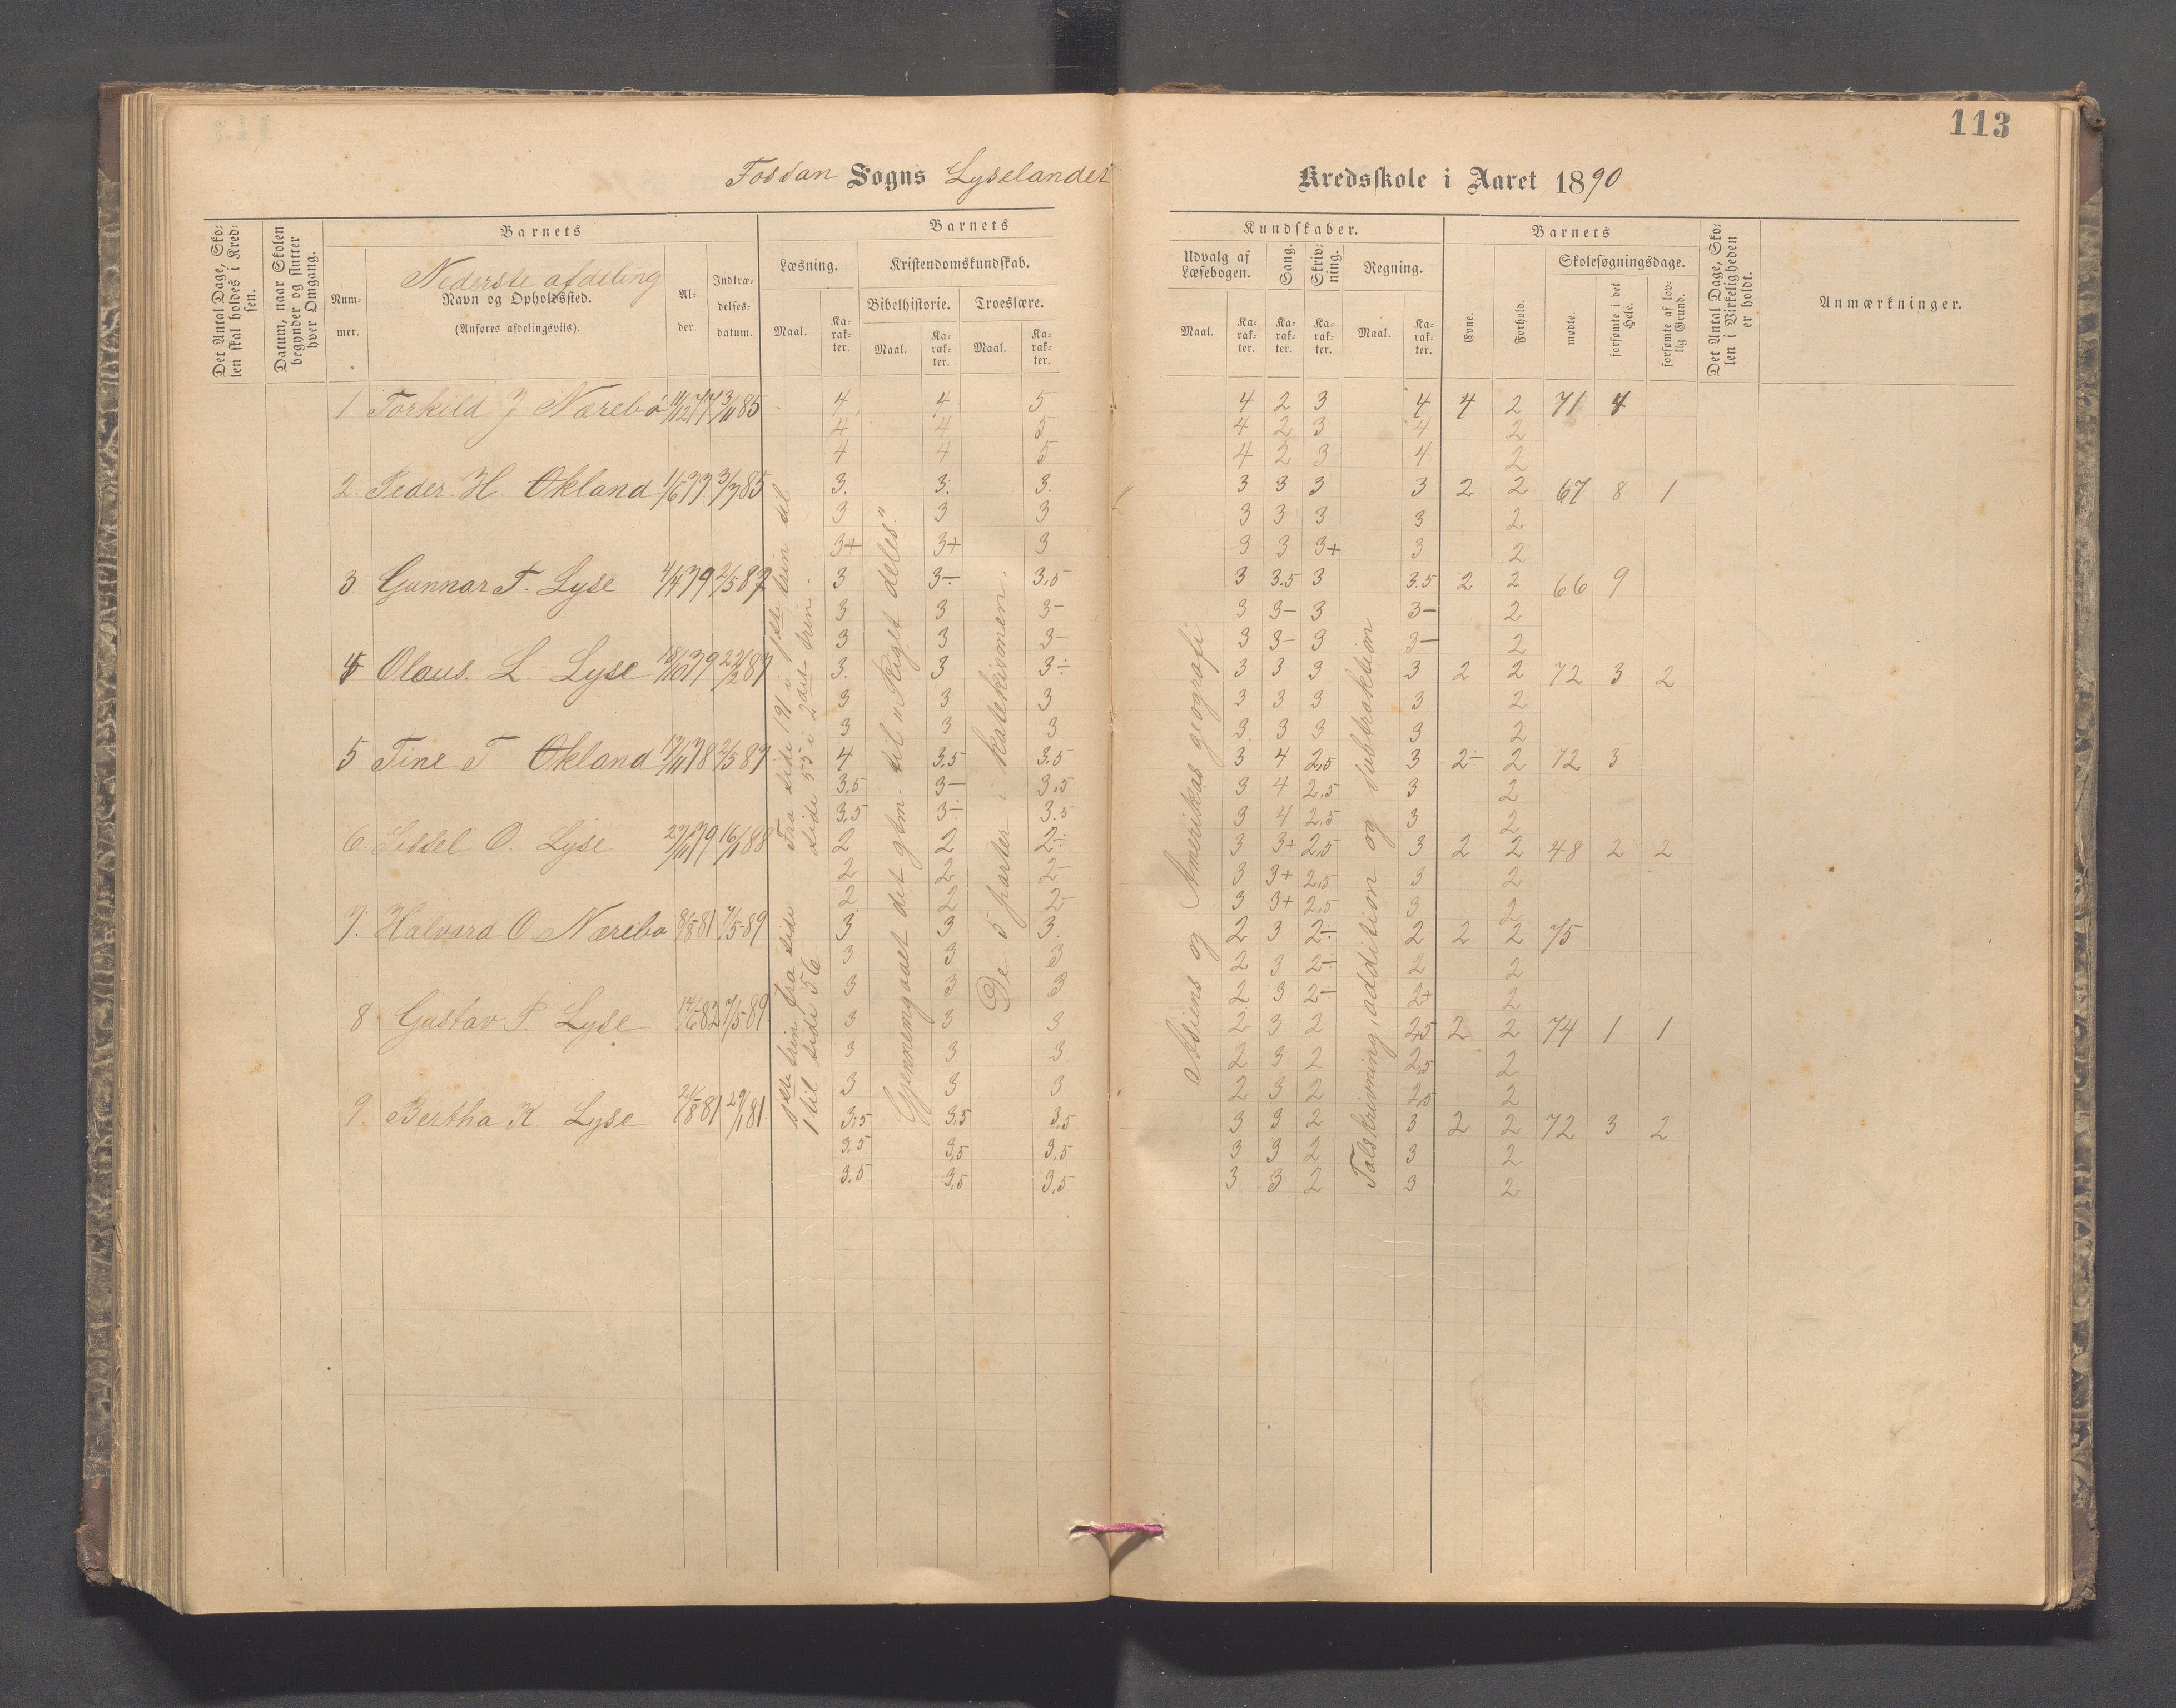 113
Fossan Sogns Lyselandet Kredsskole i Aaret 1890
Det Antal Dage, Sko-
len skal holdes i Kred-
sen.
Datum, naar Skolen
begynder og slutter
hver Omgang.
Barnets
Num-
mer.
Nederste afdeling
Navn og Opholdssted.
(Anføres afdelingsviis).
Al-
der.
Indtræ-
delses-
datum.
Barnets Kundskaber.
Læsning.
Maal.
Ka-
rak-
ter.
Kristendomskundskab.
Bibelhistorie.
Maal.
Ka-
rak-
ter.
Troeslære.
Maal.
Ka-
rak-
ter.
Udvalg af
Læsebogen.
Maal.
Ka-
rak-
ter.
Sang.
Ka-
rak-
ter.
Skriv-
ning.
Ka-
rak-
ter.
Regning.
Maal.
Ka-
rak-
ter.
Barnets
Evne.
Forhold.
Skolesøgningsdage.
mødte.
forsømte i det
Hele.
forsømte af lov-
lig Grund.
Det Antal Dage, Sko-
len i Virkeligheden
er holdt.
Anmærkninger.
1 Torkild J Nærebø 11/12 77 3/11 85 4 4 5 4 2 3 4 4 2 71 4
4 4 5 4 2 3 4 2
4 4 5 4 2 3 4 2
2. Peder H. Økland 1/6 77 3/7 85 3. 3. 3. 3 3 3 3 2 2 67 8 1
3 3 3 3 3 3 3 2
3+ 3+ 3 3 3 3+ 3 2
3 Gunnar T. Lyse 4/4 79 2/5 87 3 3- 3,5 3 3.5 3 3.5 2 2 66 9
3 3 3- 3 3- 3 3- 2
3 3 3- 3 3- 3 3- 2
4 Olaus. L. Lyse 18/10 79 22/2 87 3. 3 3÷ 3 3 3 3 2 2 72 3 2
3 3 3 3 3 3 3 2
3 3 3 3 3 3 3 2
5 Tine T Økland 19/11 78 2/5 87 4 3,5 3.5 3 4 2,5 3 2- 2 72 3
3,5 3- 3,5 3 4 2,5 3 2
3,5 3÷ 3.5 3 4 2,5 3 2
6. Sissel O. Lyse 27/11 79 16/1 88 2 2 2÷ 3 3+ 2,5 3 2 2 48 2 2
2 2 2- 3 3+ 2,5 3 2
2 2 2- 3 3+ 2,5 3 2
7. Halvard O Nærebø 9/8-81 7/5-89 3 3 3. 2 3 2÷ 2 2 2 75
3 3 3 2 3 2÷ 2 2
3 3 3 2 3 2÷ 2+ 2
8 Gustav P. Lyse 14/6-82 7/5-89 3 3 3 2 3 2 2,5 2 2 74 1 1
3 3 3 2 3 2 2,5 2
3 3 3 2 3 2 2,5 2
9. Bertha K. Lyse 24/8-81 29/1 81. 3,5 3,5 3,5 3 3 2 3 2 2 72 3 2
3,5 3,5 3,5 3 3 2 3 2
3.5 3,5 3,5 3 3 2 3 2
1ste trin fra side
1 til side 56
Fra side 191 i 1ste trin til
side 55 i 2det trin.
Gjennemgaaet det glm. til „Riget deles."
De 5 parter i katekismen.
Asiens og Amerikas geografi
Talskrivning, addition og subtraktion